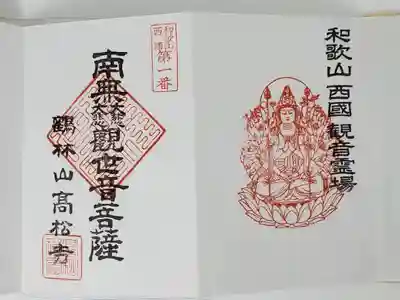 和歌山西國觀音霊場
和歌山
西國
第一番
南無大慈大悲觀世音菩薩
鶴林山高松寺